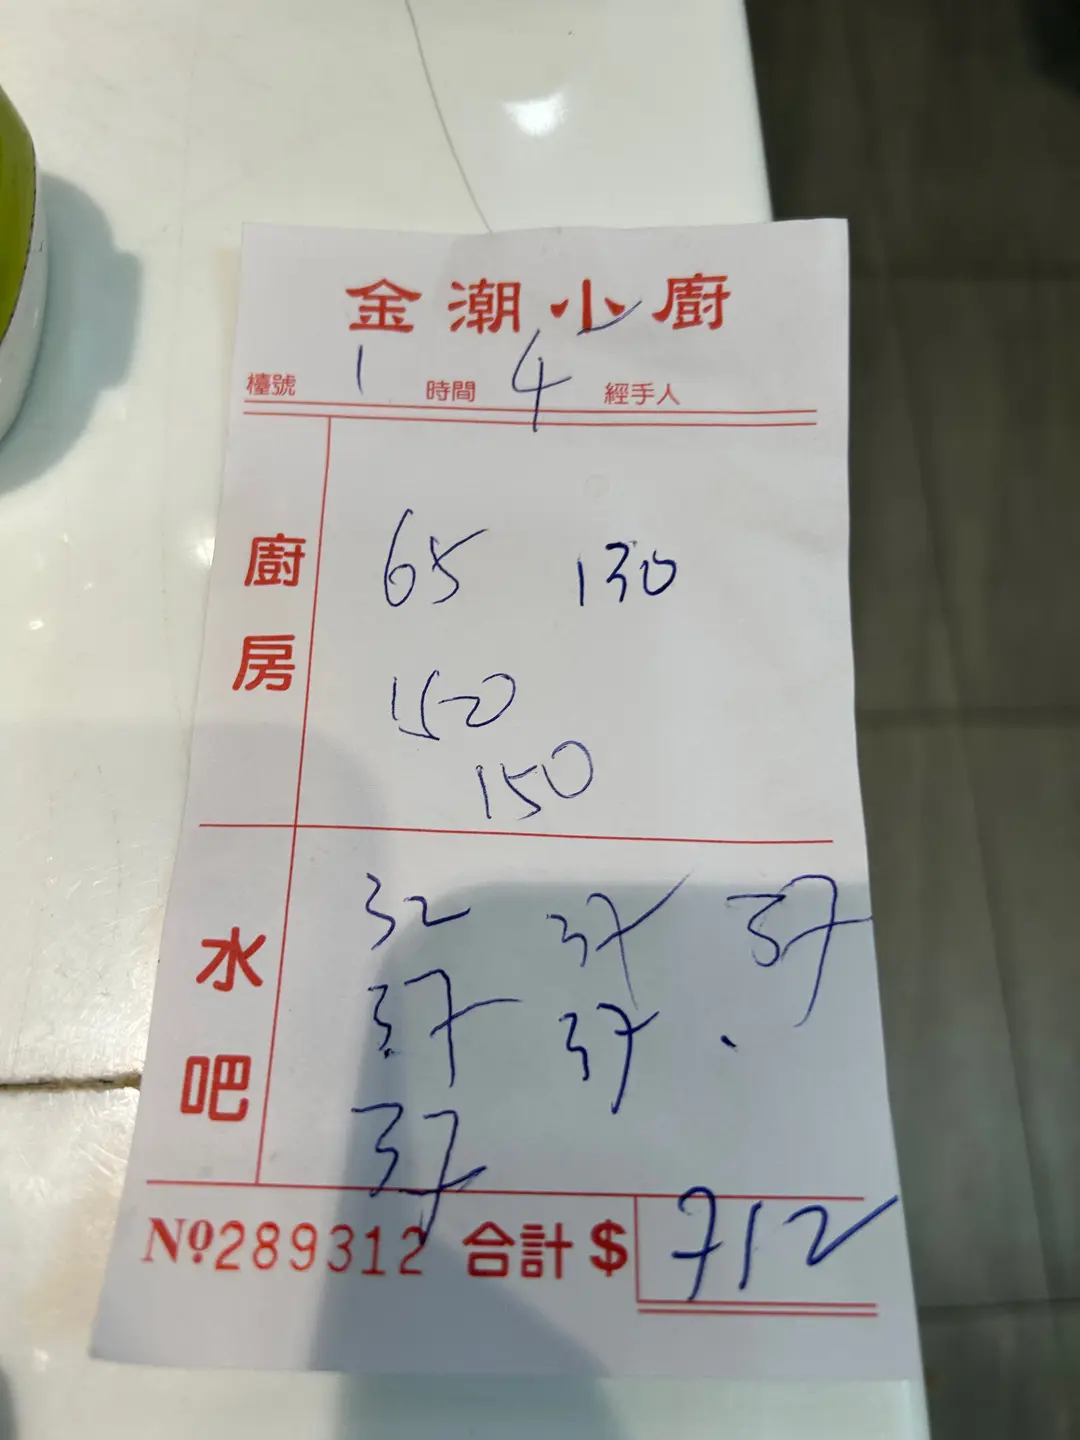 金潮小廚
檯號 1 時間 4 經手人
廚房
65 130
150
150
水吧
32 37 37
37 37
37
Nº289312 合計$ 712